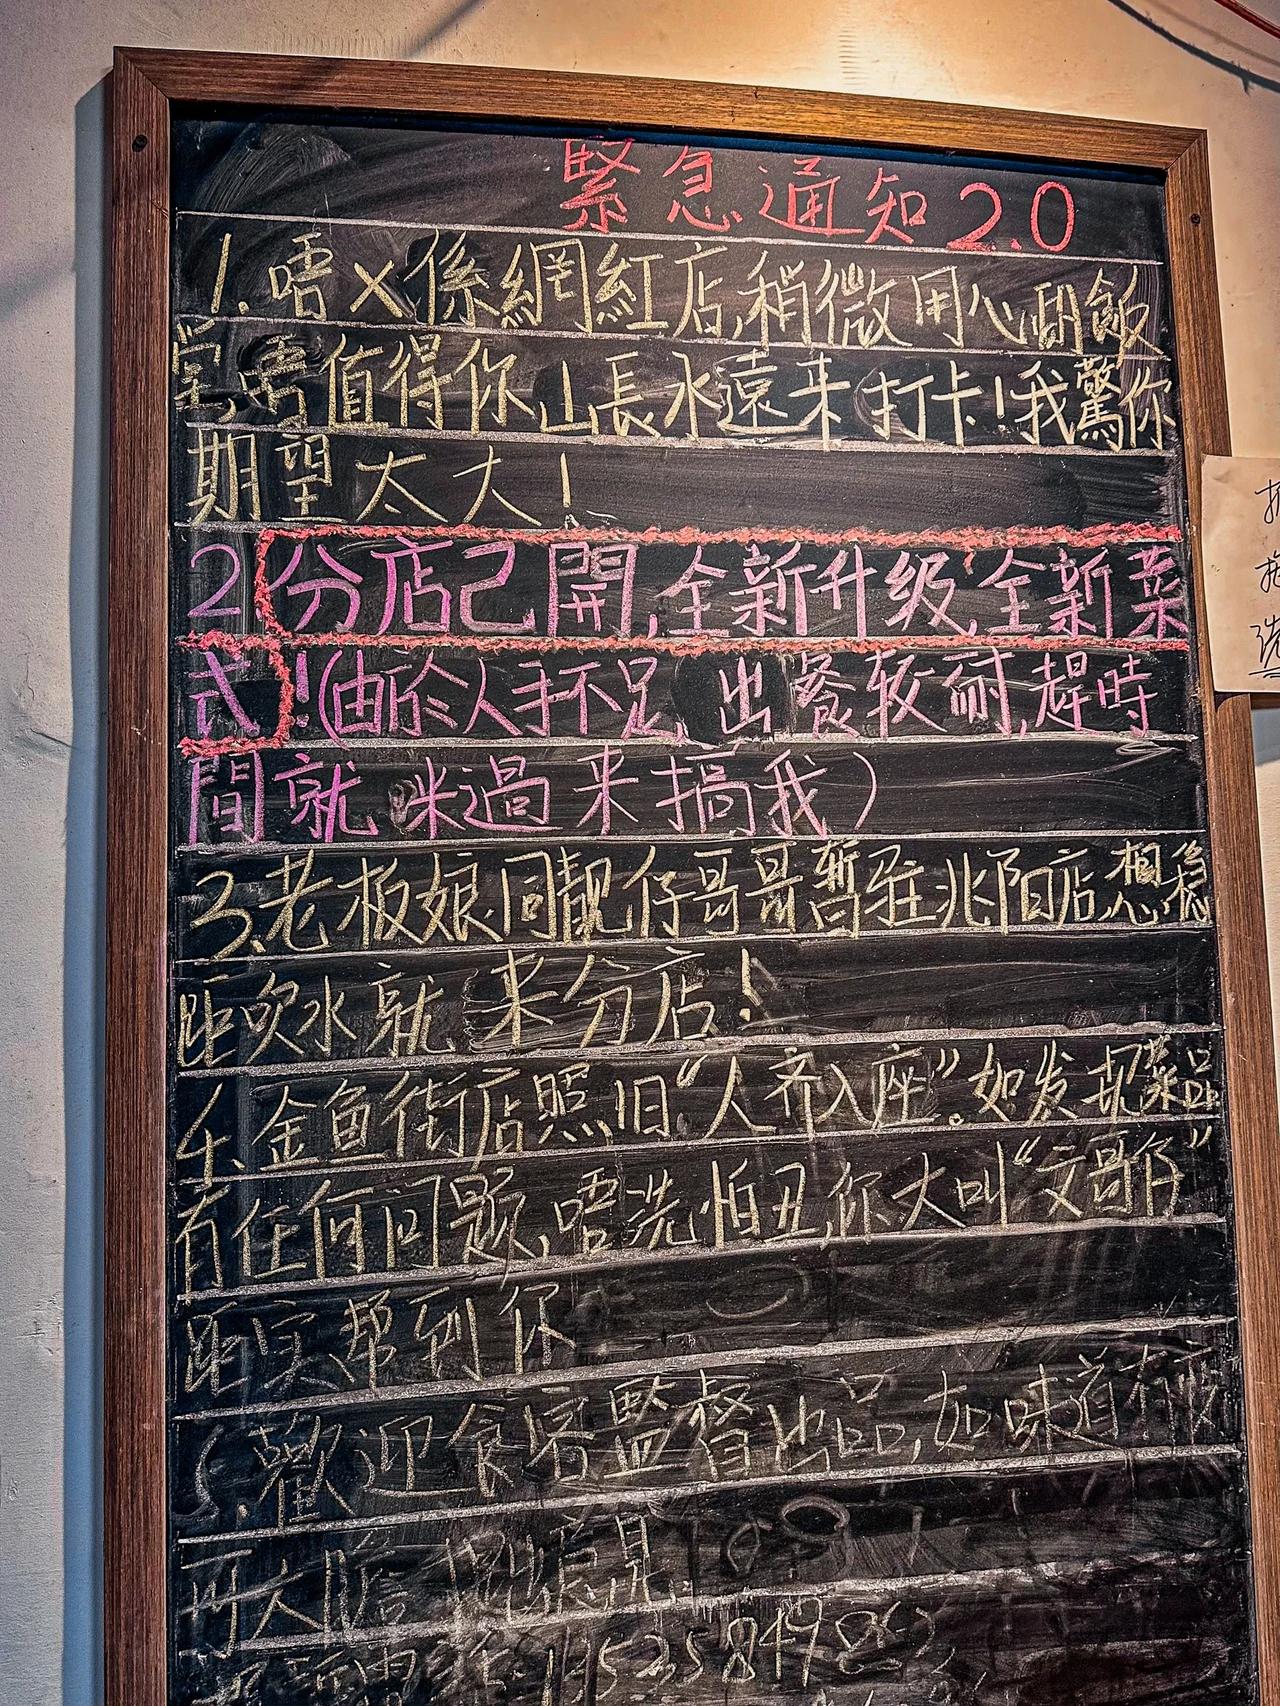 緊急通知2.0
1.唔×係網紅店,稍微用心嘅飯
堂,唔值得你山長水遠来打卡!我驚你
期望太大!
2(分店己開,全新升级,全新菜
式!(由於人手不足,出餐较耐,趕時
間就咪過来搞我)
3.老板娘同靚仔哥哥暫驻兆阳店,想稳
距吹水就来分店!
4.金鱼街店照旧“人齐入座”。如发现菜品
有任何问题,唔洗怕丑,你大叫“文哥仔”
距实帮到你
5.歡迎食客監督出品,如味道有变
可大胆提出意見.